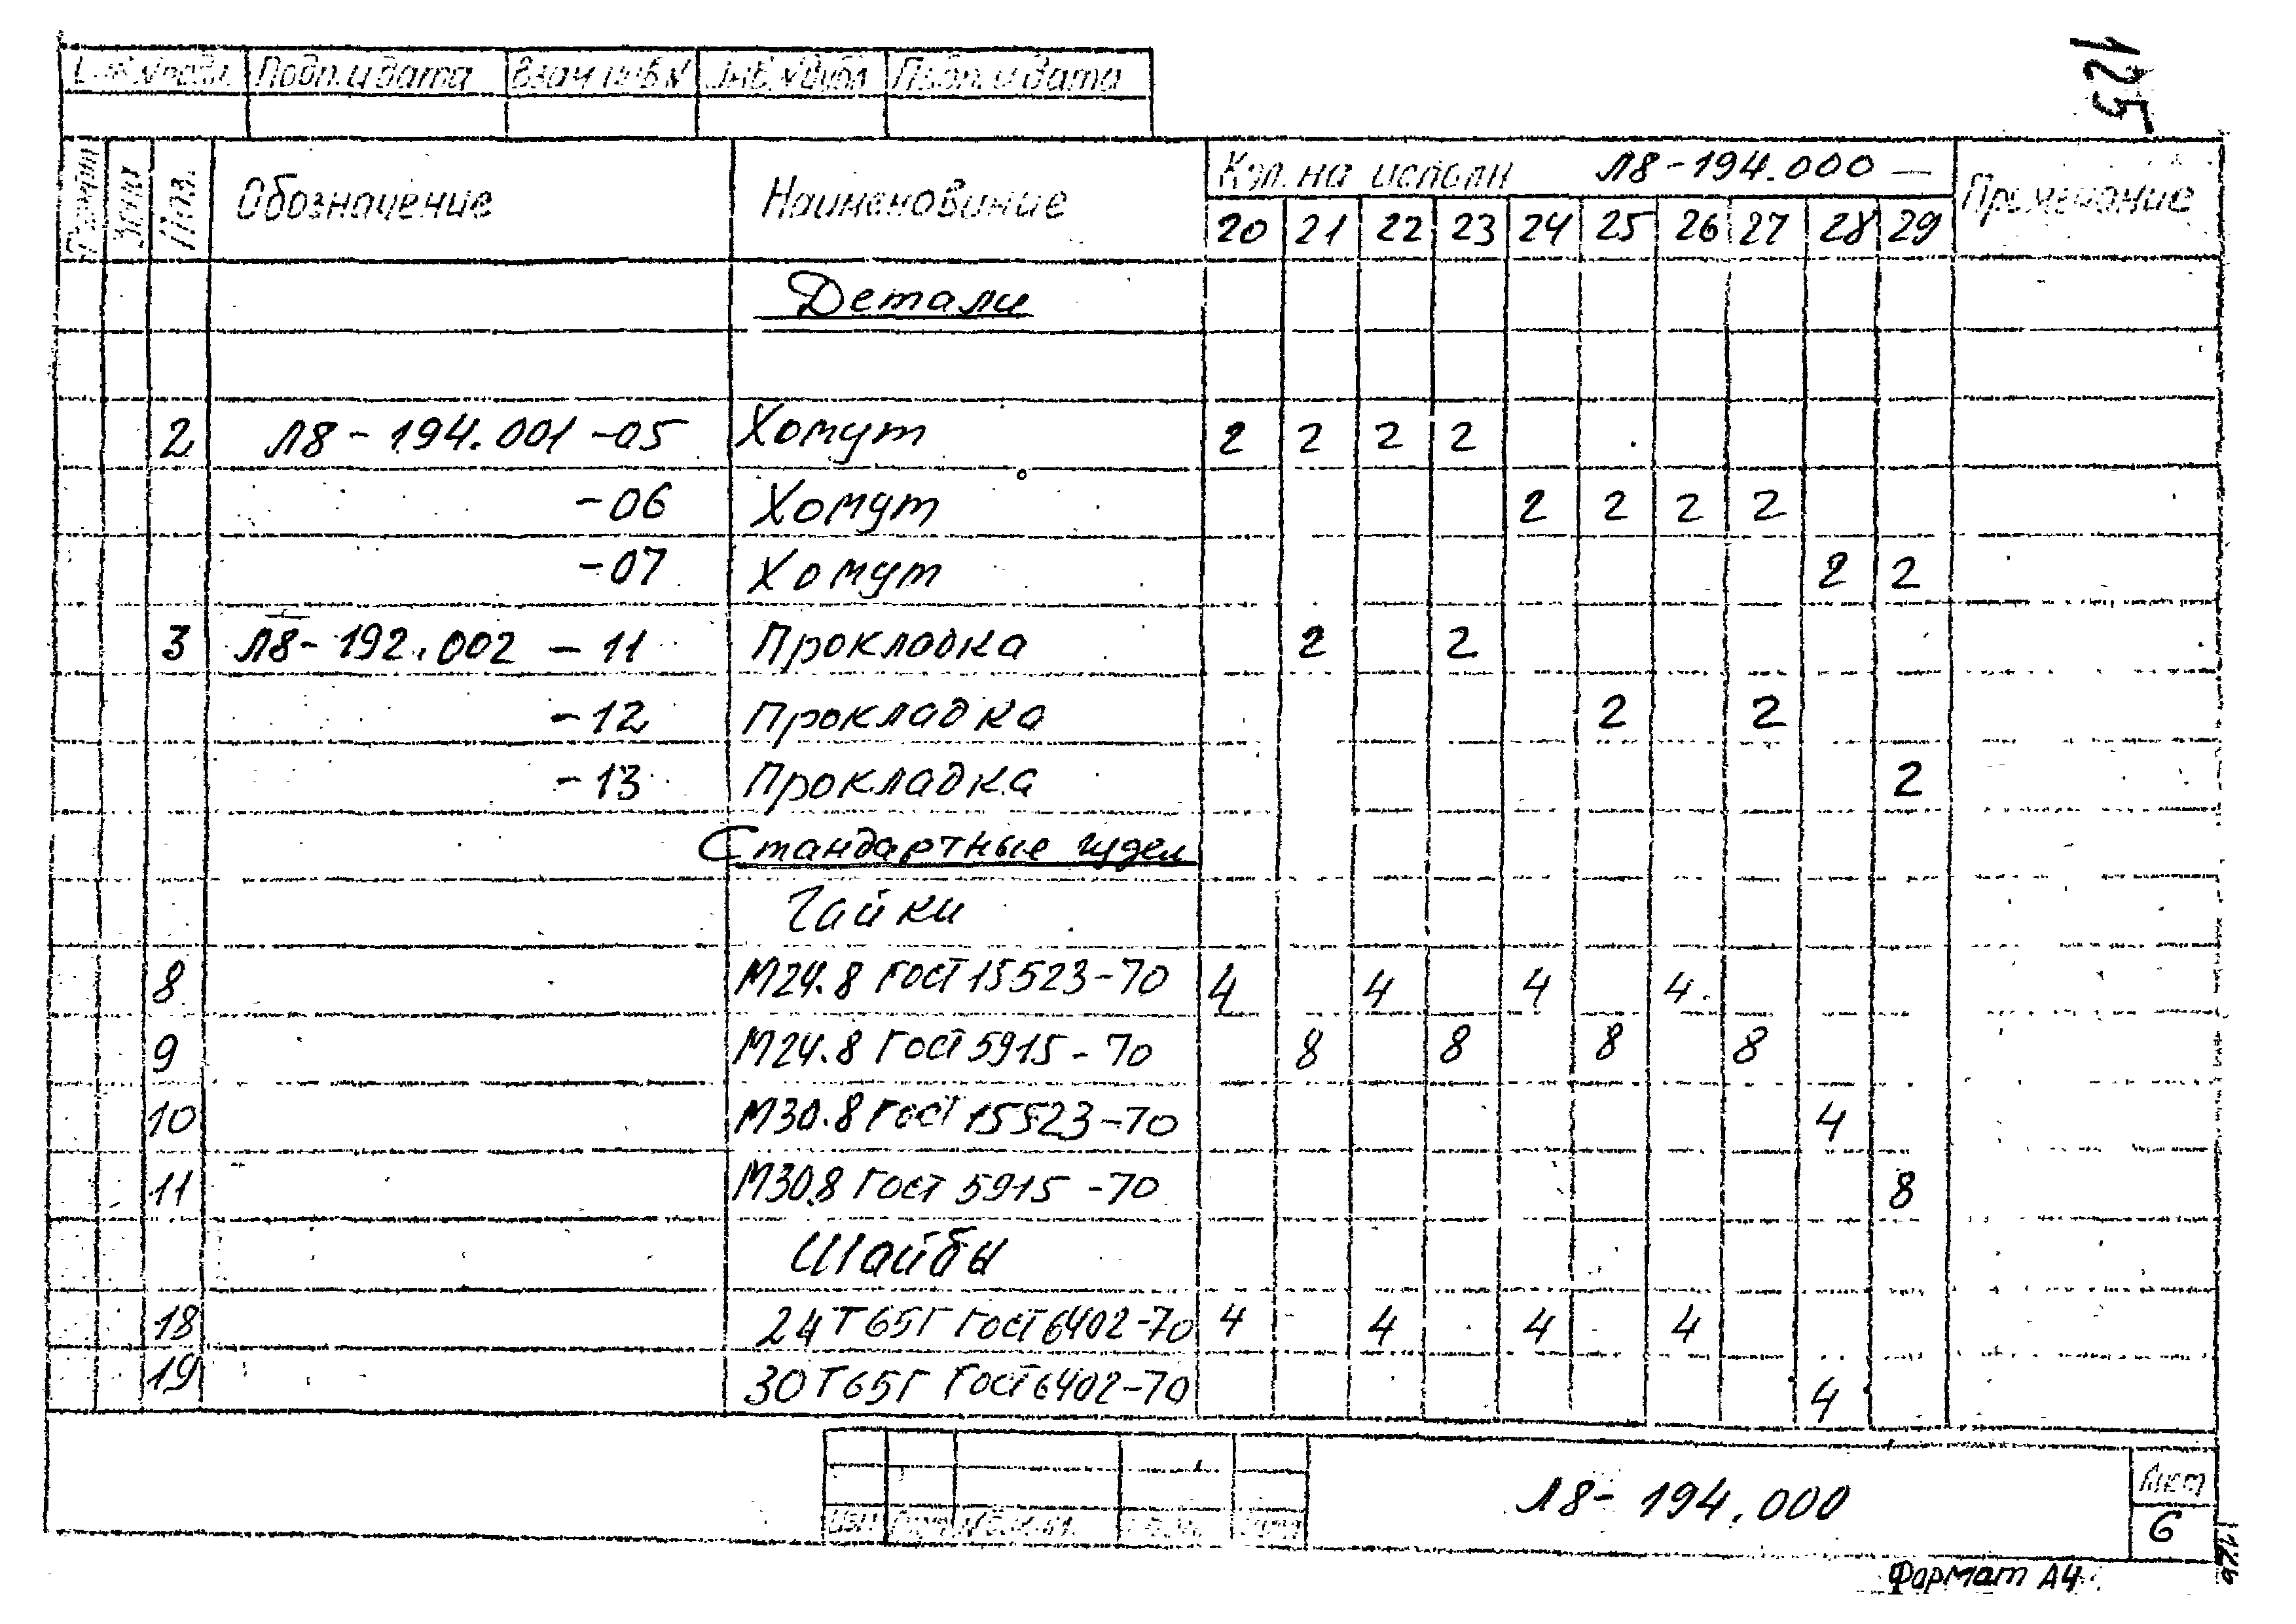 125
Инв.№подл. Подп. и дата Взам инв № Инв.№дубл Подп. и дата
Формат Зона Поз. Обозначение Наименование Кол. на исполн Л8-194.000 — Примечание
20 21 22 23 24 25 26 27 28 29
Детали
2 Л8-194.001-05 Хомут 2 2 2 2
-06 Хомут 2 2 2 2
-07 Хомут 2 2
3 Л8-192.002 -11 Прокладка 2 2
-12 Прокладка 2 2
-13 Прокладка 2
Стандартные издел
Гайки
8 М24.8 ГОСТ 15523-70 4 4 4 4
9 М24.8 ГОСТ 5915-70 8 8 8 8
10 М30.8 ГОСТ 15523-70 4
11 М30.8 ГОСТ 5915-70 8
Шайбы
18 24Т 65Г ГОСТ 6402-70 4 4 4 4
19 30Т 65Г ГОСТ 6402-70 4
Л8-194.000
Лист
6
Формат А4